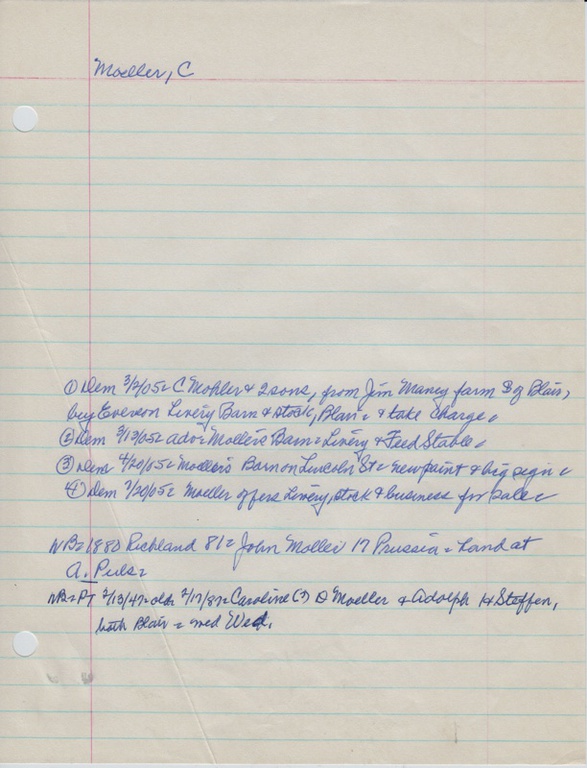 Moeller, C
① Dem 3/2/05= C Mohler & 2 sons, from Jim Maney farm S of Blair,
buy Everson Livery Barn & stock, Blair = & take charge.
② Dem 4/13/05= ad = Moller's Barn = Livery & Feed Stable.
③ Dem 4/20/05= Moeller's Barn on Lincoln St = new paint & big sign.
④ Dem 7/20/05= Moeller offers Livery, stock & business for sale.
NB=1880 Richland 81= John Moller 17 Prussia = hand at
A. Puls=
NB=PT 2/13/47= 2/17/87= Caroline (?) D Moeller & Adolph H Steffen,
both Blair = wed Wed.